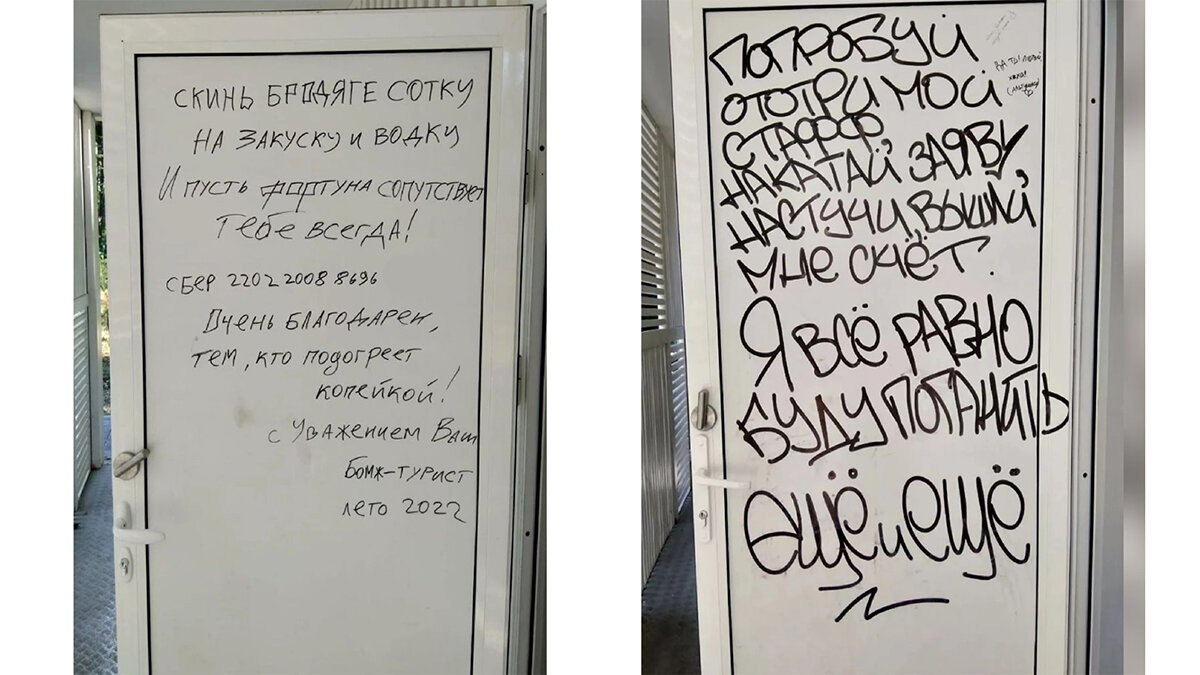 СКИНЬ БРОДЯГЕ СОТКУ
НА ЗАКУСКУ И ВОДКУ
И ПУСТЬ ФОРТУНА СОПУТСТВУЕТ
ТЕБЕ ВСЕГДА!
СБЕР 2202 2008 8696
ОЧЕНЬ БЛАГОДАРЕН,
ТЕМ, КТО ПОДОГРЕЕТ
КОПЕЙКОЙ!
С УВАЖЕНИЕМ ВАШ
БОМЖ-ТУРИСТ
ЛЕТО 2022
ПОПРОБУЙ
ОТОТРИ МОЙ
СТАФФ,
НАКАТАЙ ЗАЯВУ
НАСТУЧИ, ВЫШЛИ
МНЕ СЧЁТ.
Я ВСЁ РАВНО
БУДУ ПОГАНИТЬ
ЕЩЁ И ЕЩЁ